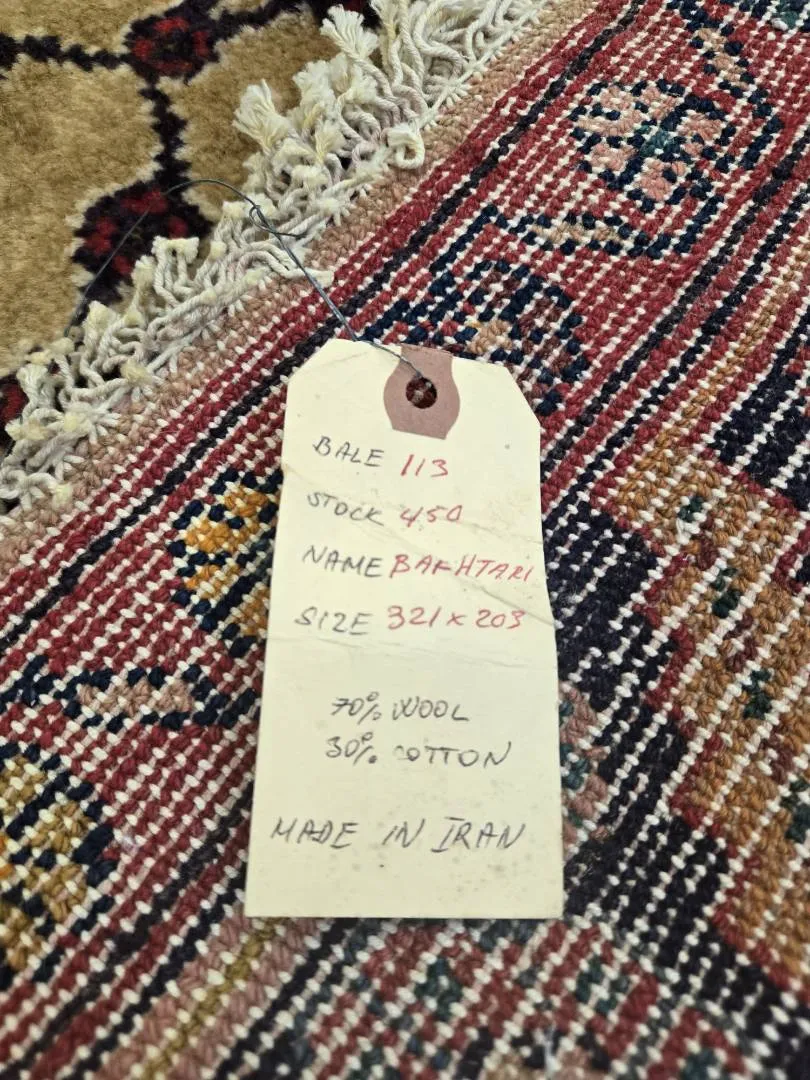 BALE 113
STOCK 450
NAME BAKHTARI
SIZE 321 x 203
70% WOOL
30% COTTON
MADE IN IRAN